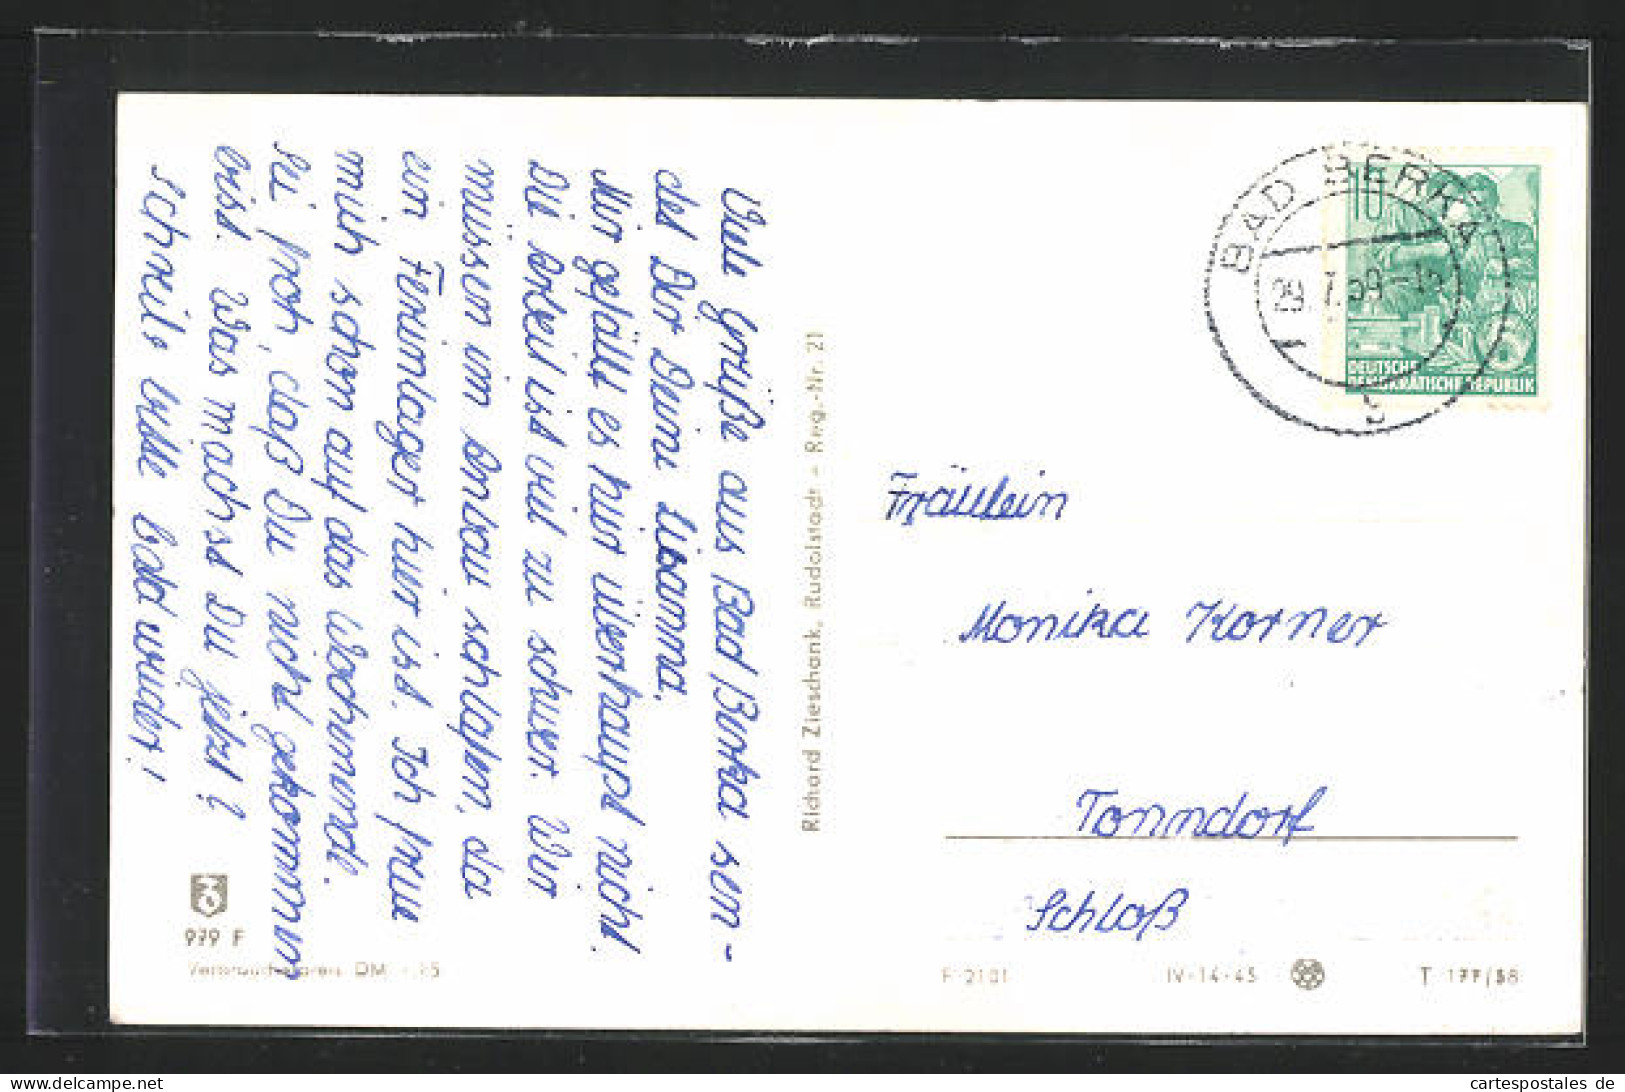 Viele Grüße aus Bad Berka sen-
det Dir Deine
Mir gefällt es hier überhaupt nicht.
Die Arbeit ist viel zu schwer. Wir
müssen im Anbau schlafen, da
ein Ferienlager hier ist. Ich freue
mich schon auf das Wochenende.
Sei froh, daß Du nicht gekommen
bist. Was machst Du jetzt?
Schreib bitte bald wieder!
979 F
Verbraucherpreis DM -,15
Richard Zieschank, Rudolstadt - Reg.-Nr. 21
BAD BERKA
29.7.59-15
10
DEUTSCHE
DEMOKRATISCHE REPUBLIK
Fräulein
Monika Korner
Tonndorf
Schloß
F 2101 IV-14-45 T 177/58
cartespostales de